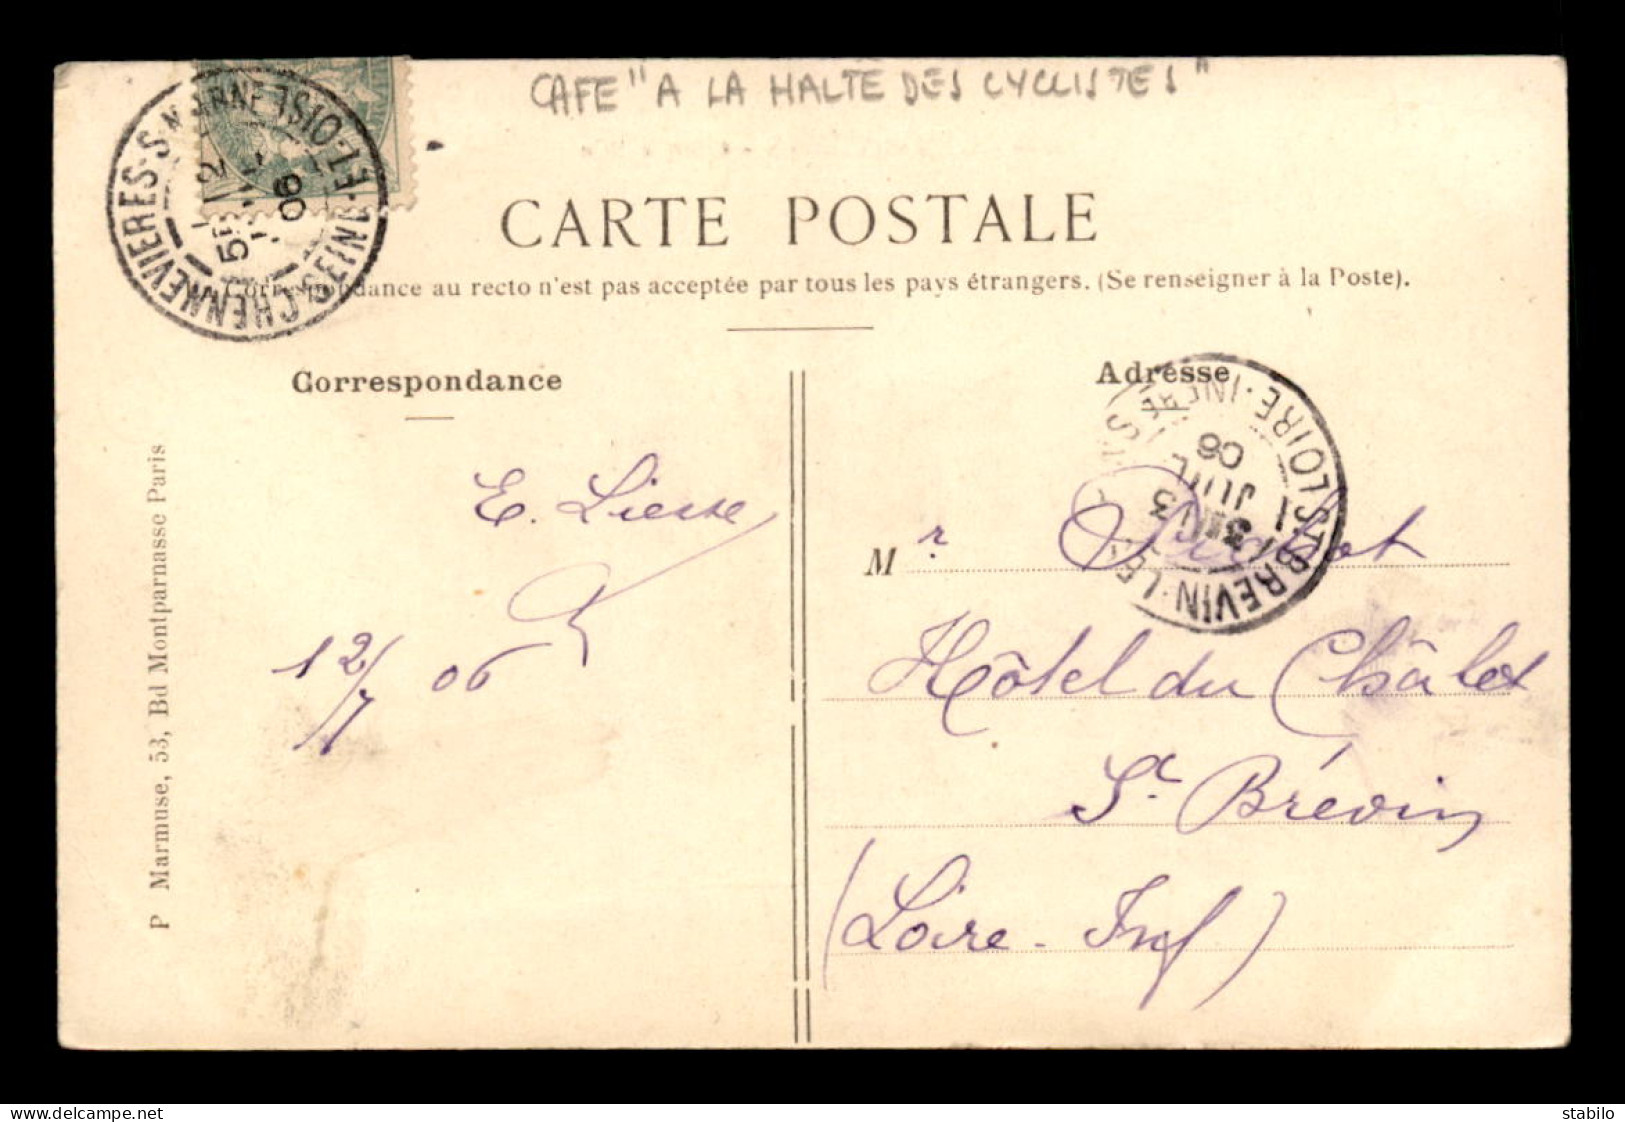 CAFE "A LA HALTE DES CYCLISTES"
CHENNEVIERES-S-MARNE
SEINE-ET-OISE
12
06
CARTE POSTALE
Correspondance au recto n'est pas acceptée par tous les pays étrangers. (Se renseigner à la Poste).
Correspondance
E. Liesse
12/7 06
P Marmuse, 53, Bd Montparnasse Paris
Adresse
ST BREVIN-LES
LOIRE-INFRE
13
JUIL
06
M r
Hôtel du Châlet
St. Brévin
(Loire - Inf)
stabilo